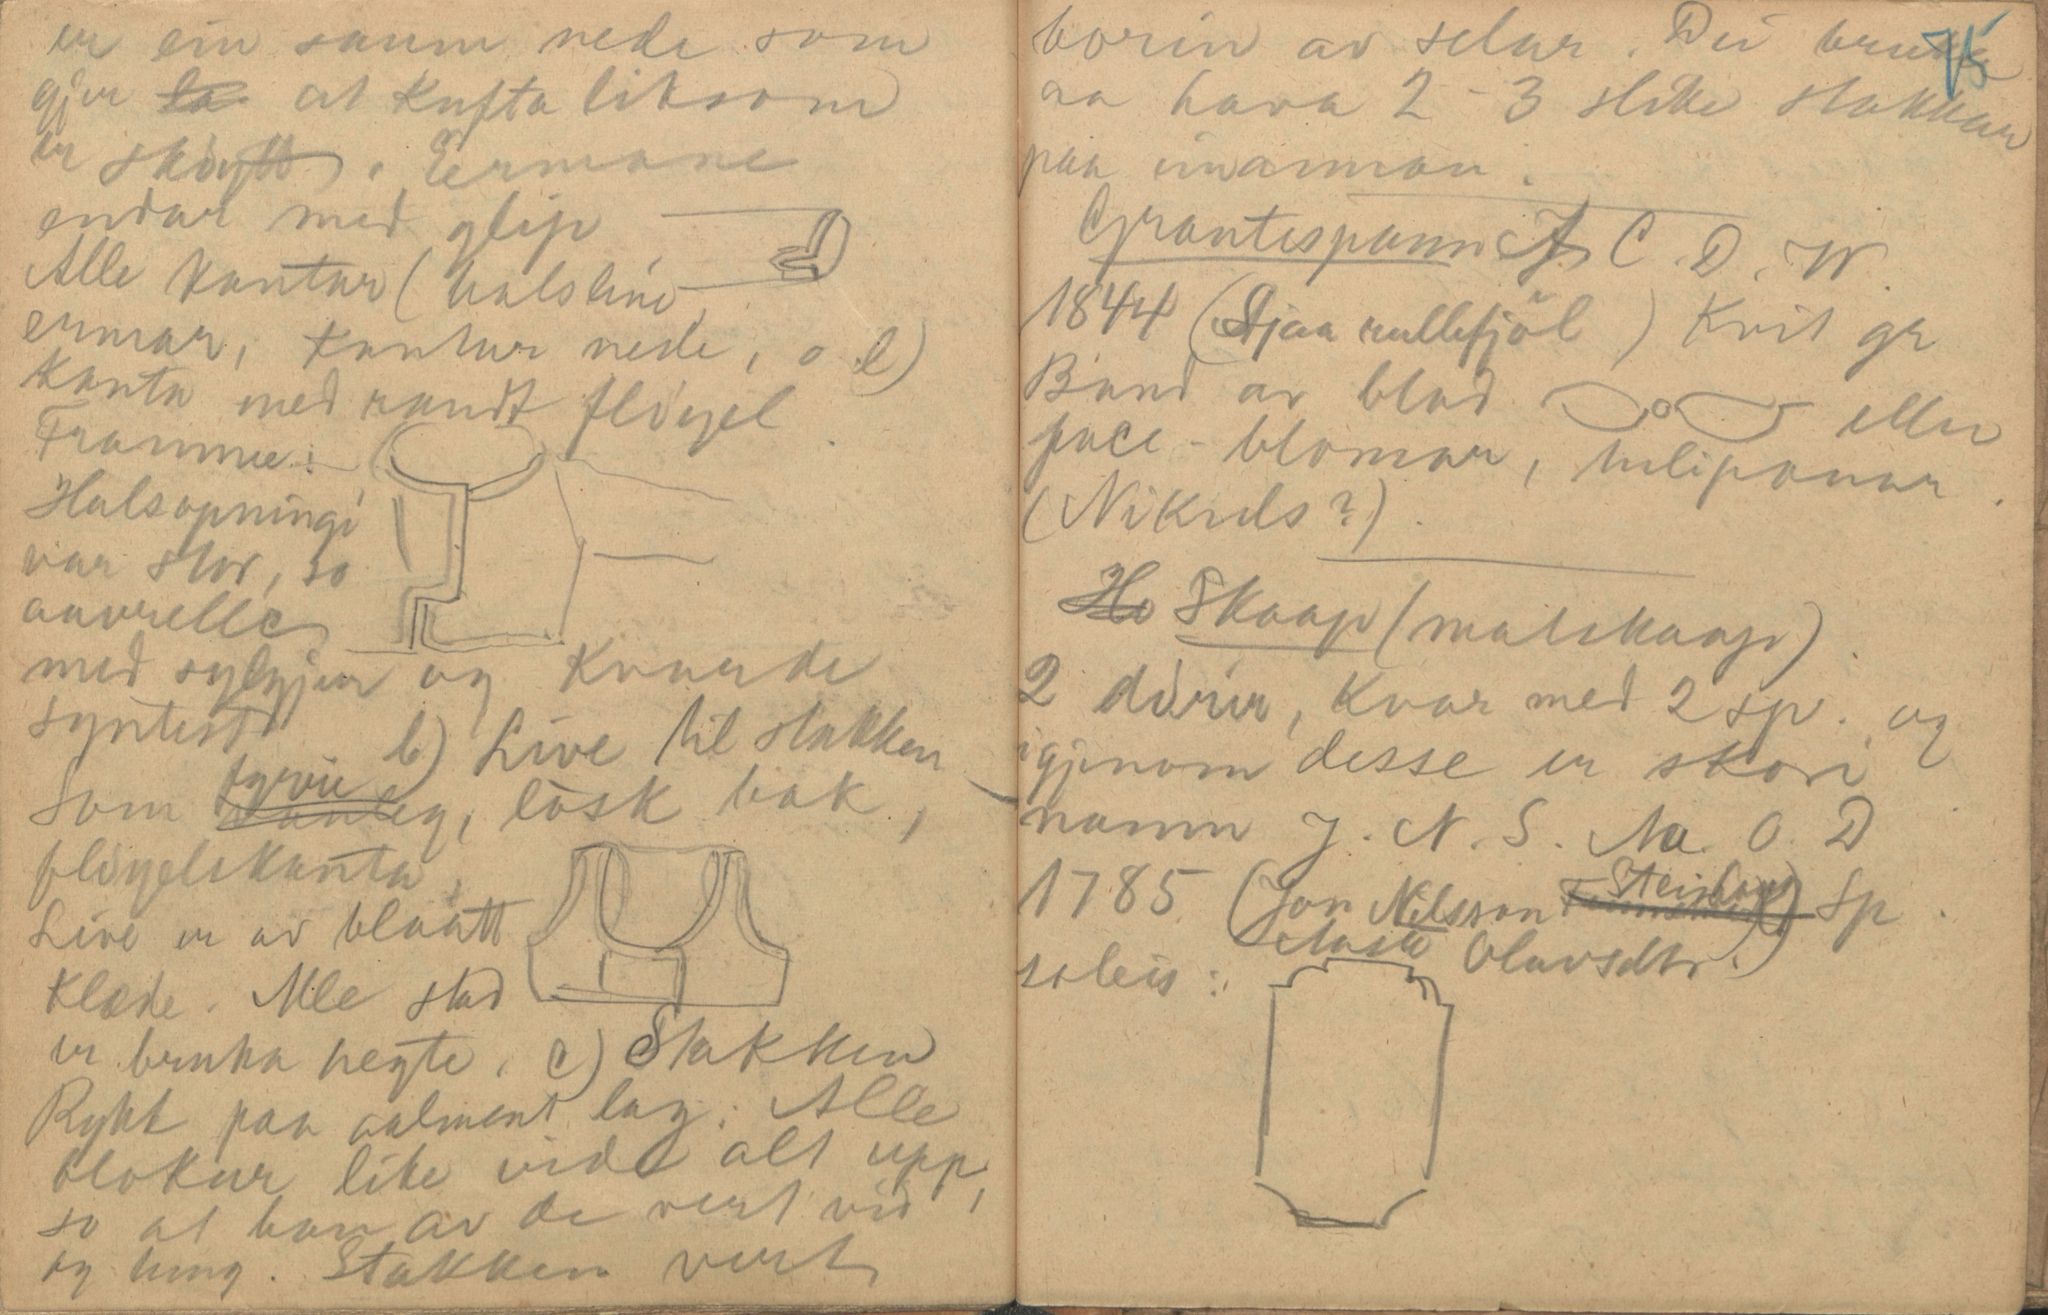 er ein saum nede som
gjer at Kufta liksom
er skøytt. Ermane
endar med glip
Alle kantar (halslinè,
ermar, kantar nede, o l)
kanta med raudt fløyel.
Framme:
Halsopningi
var stor, so
med sylgjur og Kvarde
b) Live til stakken
Som fyrr løsk bak,
fløyelskanta.
Live er av blaatt
Klæde. Alle stad
er bruka hegte. c) Stakken
Rykt paa aalment lag. Alle
blokar like vide alt upp,
so at han av de vert vid
og tung. Stakken vert
75
borin av selar. Dei bruka
aa hava 2-3 slike stakkar
paa einannan.
Grautispann C. D. W.
1844 (Sjaa rullefjøl) Kvit gr
Band av blad eller
blomar, tulipanar.
(Nikuls?).
Ho Skaap (matskaap)
2 dørir, Kvar med 2 sp. og
igjenom desse er skori
namn J. N. S. Ma. O. D
1785 (Jon Nilsson Sp.
Olavsdtr.)
soleis: